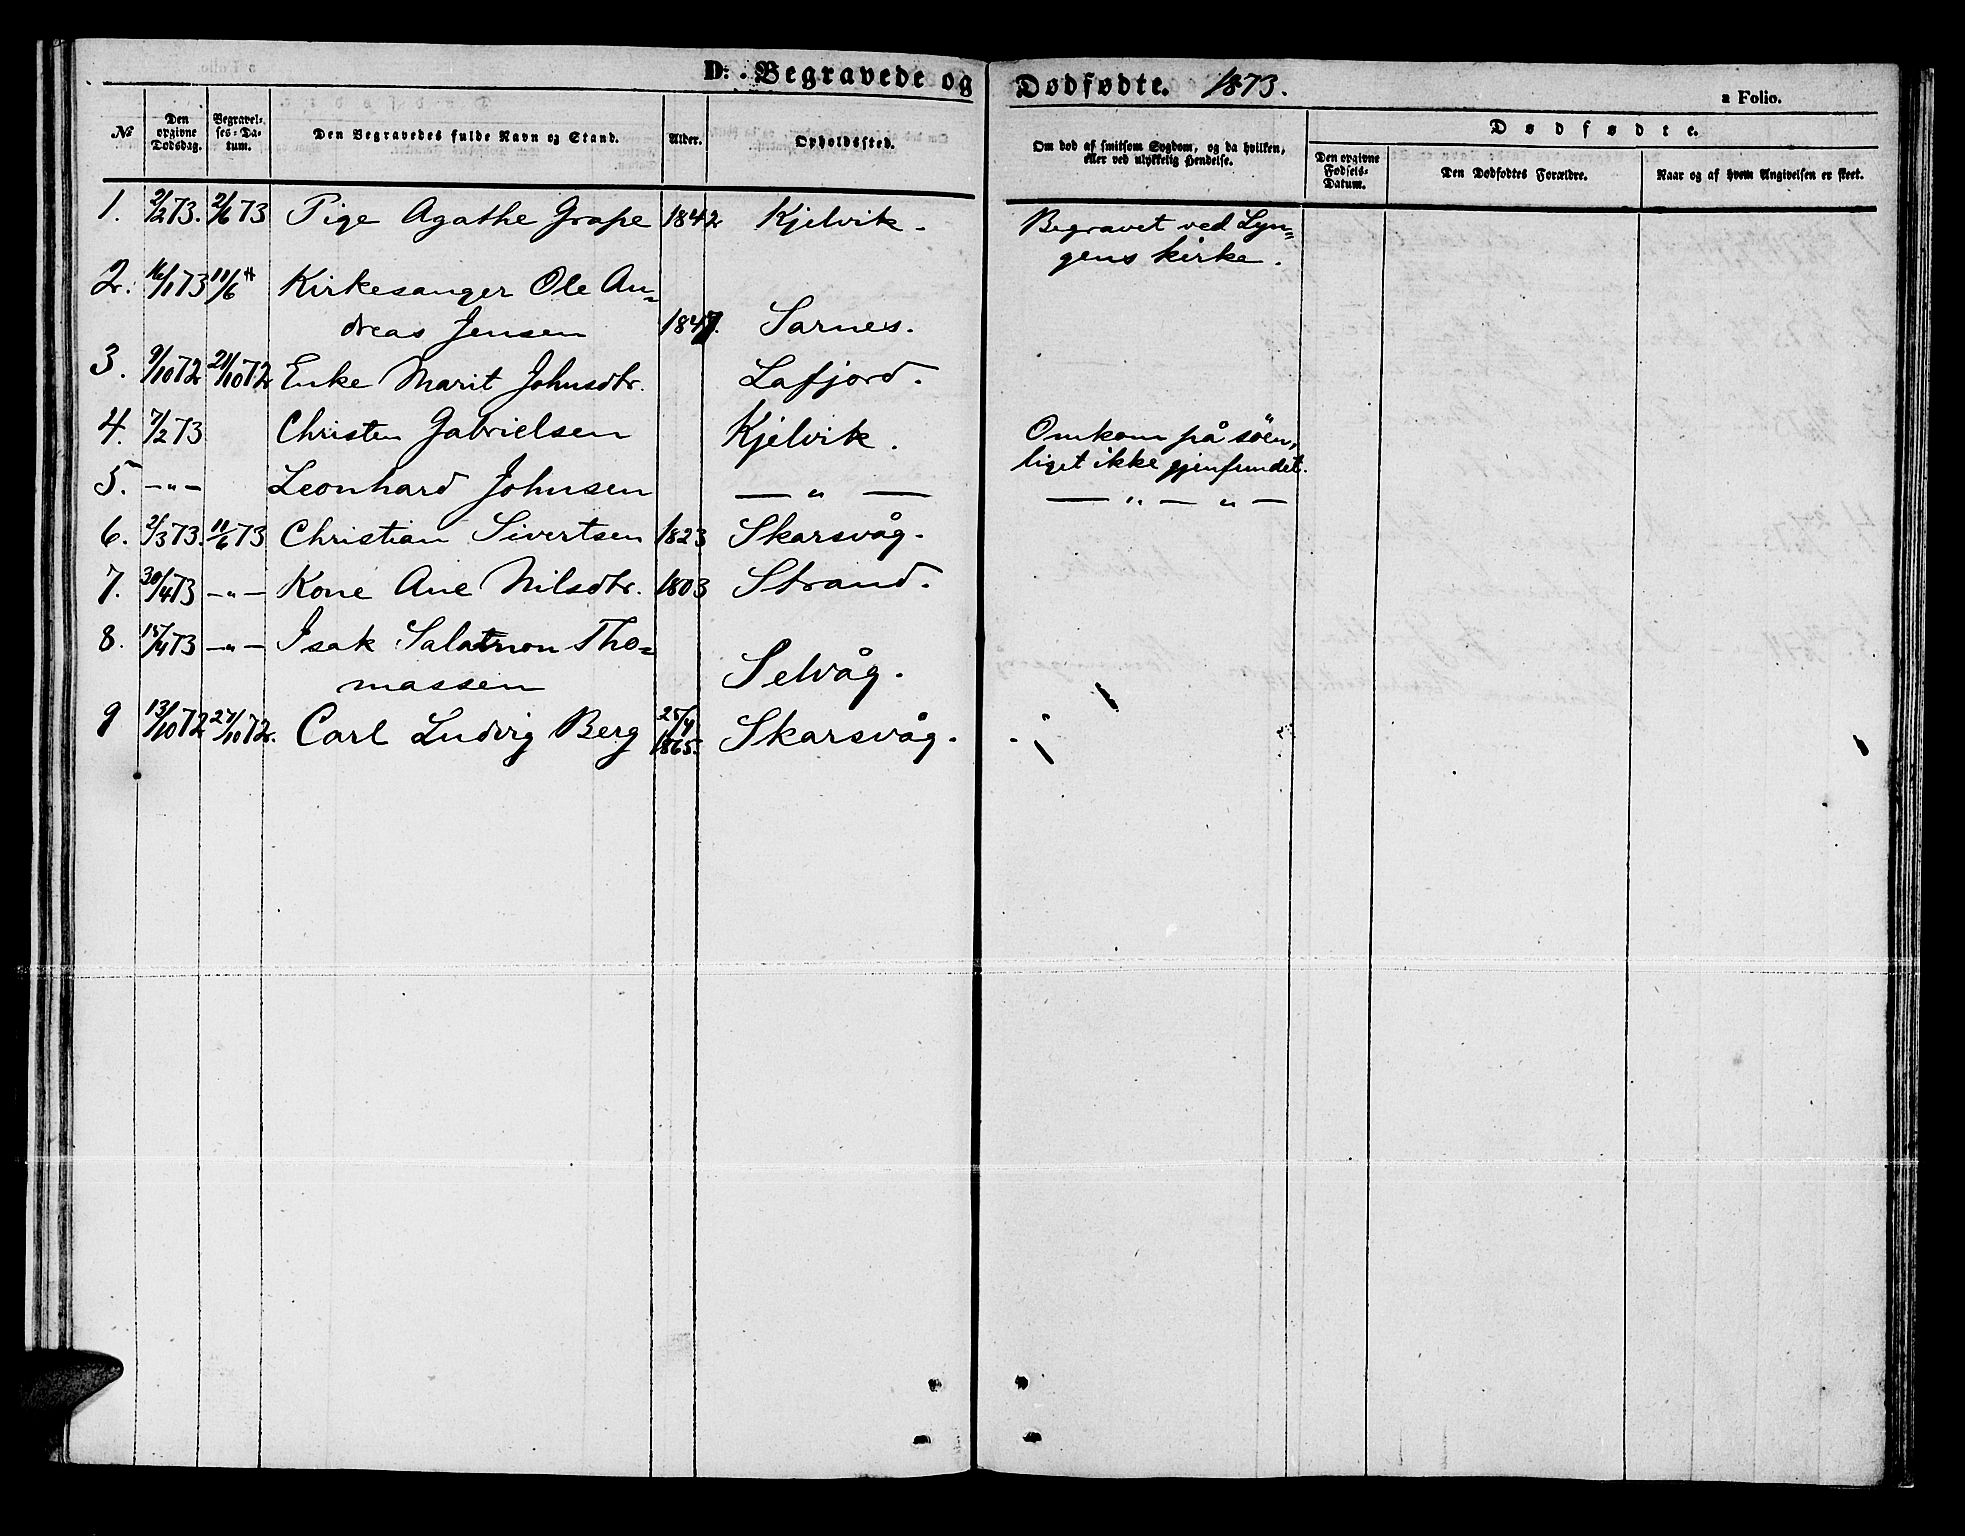 D: Begravede og Dødfødte. 1873.
a Folio.
№ Den opgivne Dødsdag. Begravelses-Datum. Den Begravedes fulde Navn og Stand. Alder. Opholdssted. Om død af smitsom Sygdom, og da hvilken, eller ved ulykkelig Hendelse. Dødfødte.
Den opgivne Fødsels-Datum. Den Dødfødtes Forældre. Naar og af hvem Angivelsen er skeet.
1. 2/2 73. 2/6 73 Pige Agathe Grape 1842 Kjelvik. Begravet ved Lyn=
gens kirke.
2. 16/1 73 11/6 " Kirkesanger Ole An=
dreas Jensen 1847. Sarnes.
3. 9/10 72 21/10 72 Enke Marit Johnsdtr. Lafjord.
4. 7/2 73 Christen Gabrielsen Kjelvik. Omkom på søen,
liget ikke gjenfundet.
5. — " — Leonhard Johnsen — " — — " — " —
6. 2/3 73. 11/6 73 Christian Sivertsen 1823 Skarsvåg.
7. 30/4 73 — " — Kone Ane Nilsdtr. 1803 Strand.
8. 15/4 73 — " — Isak Salamon Tho=
massen Selvåg.
9 13/10 72 27/10 72. Carl Ludvig Berg 25/4
1865. Skarsvåg.